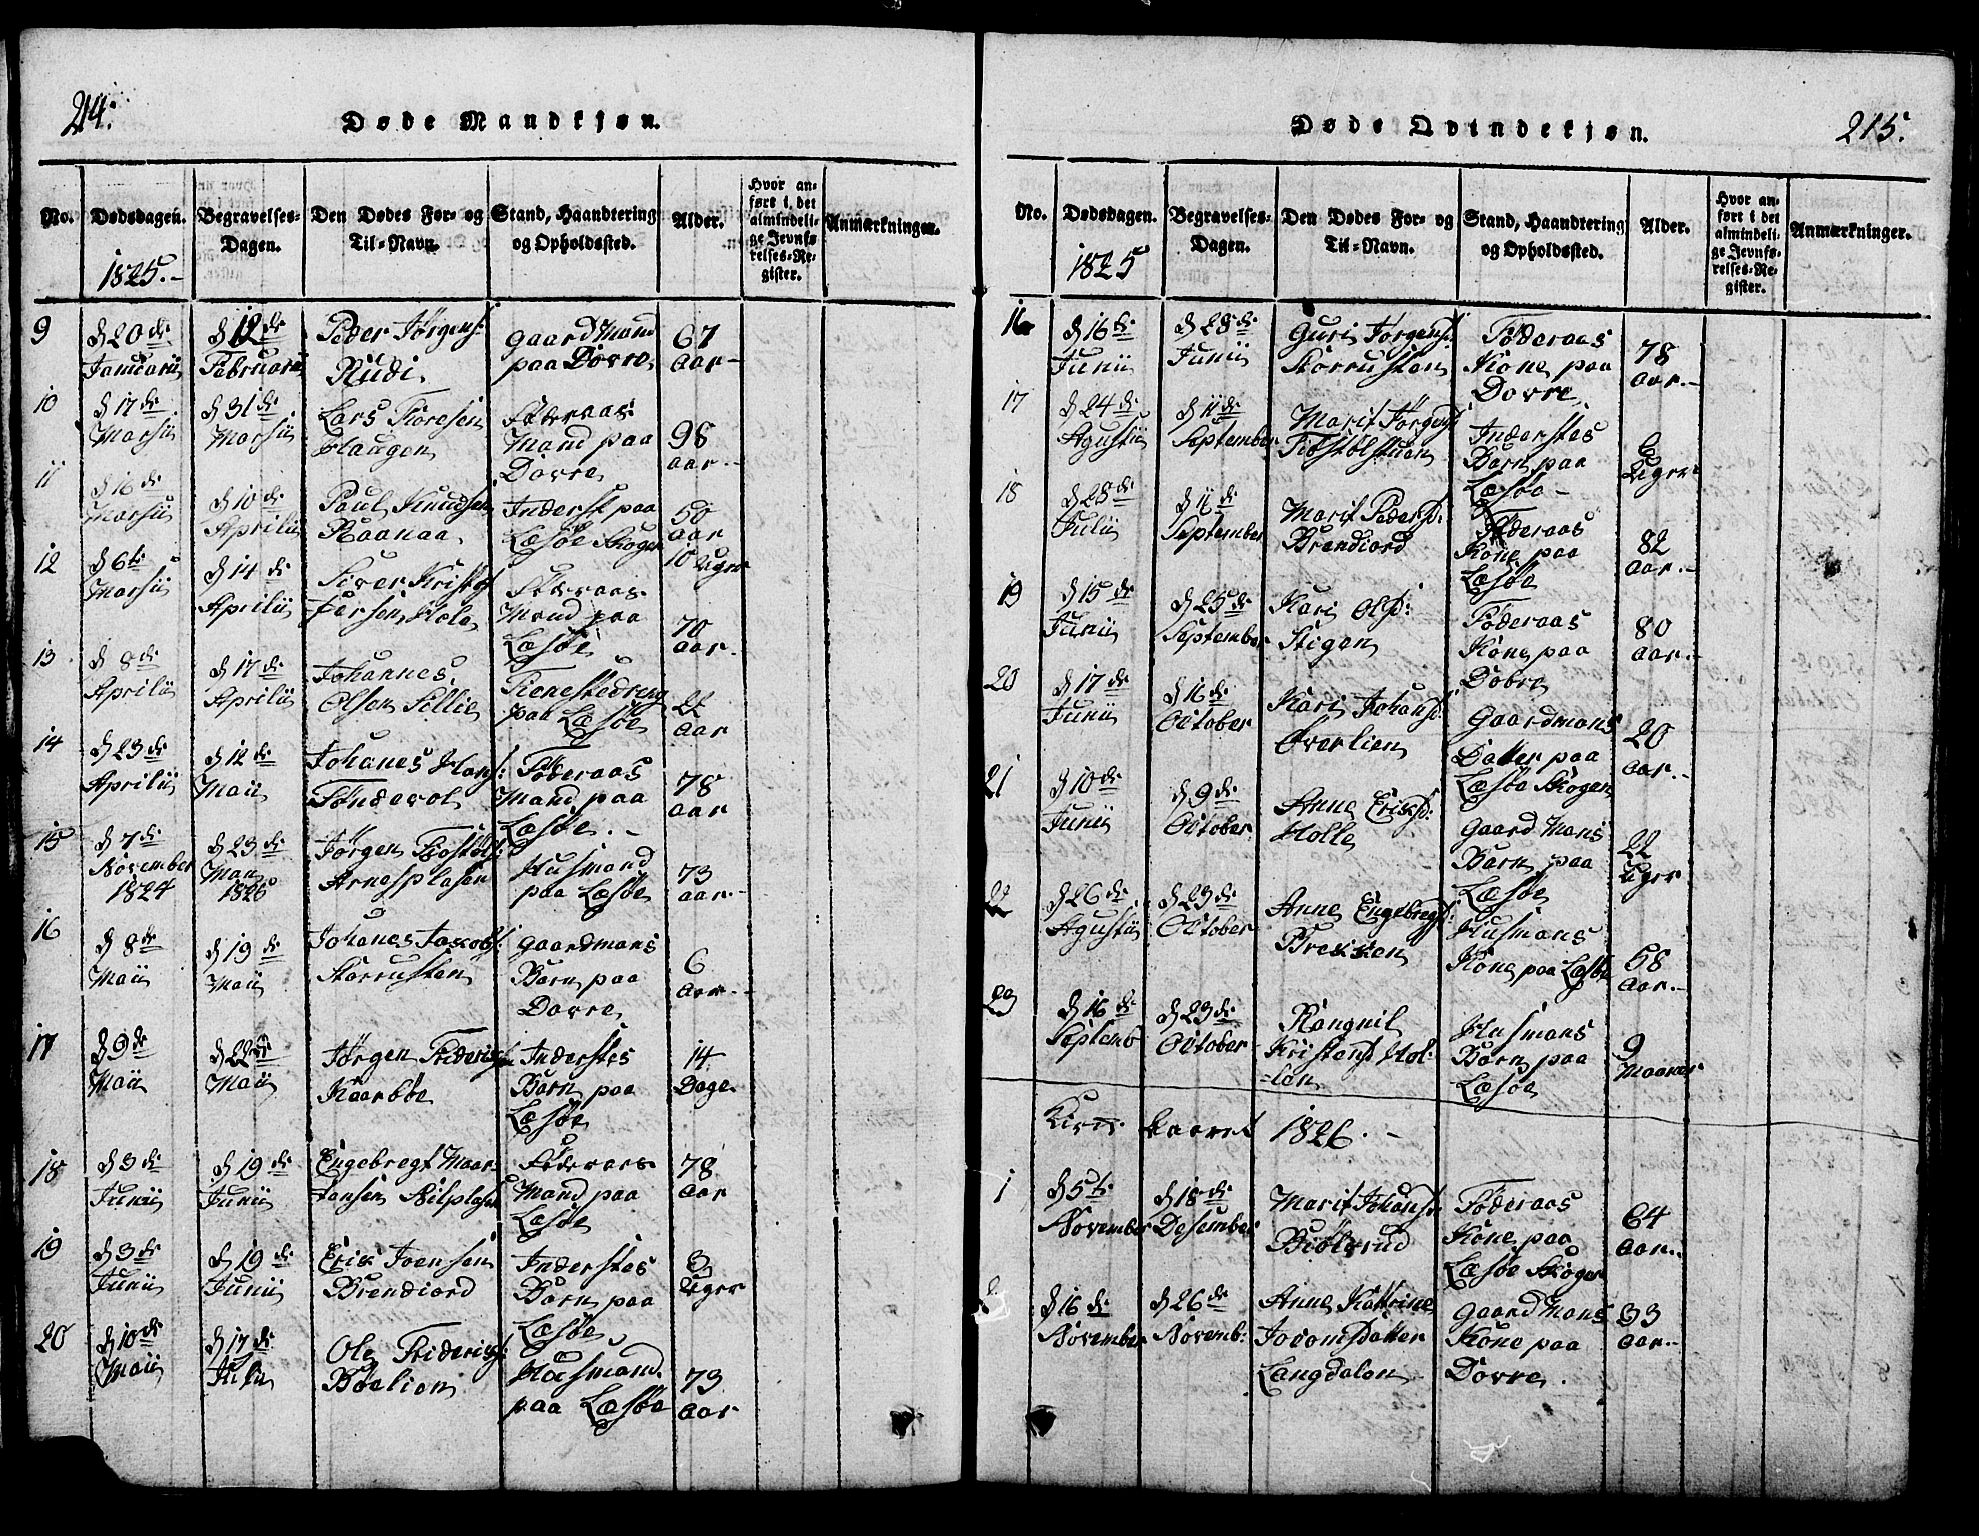 214.
Døde Mandkjøn.
No.
Dødsdagen.
1825.-
Begravelses-
Dagen.
Den Dødes For- og
Til-Navn.
Stand, Haandtering
og Opholdssted.
Alder.
Hvor an-
ført i det
almindeli-
ge Jevnfø-
relses-Re-
gister.
Anmærkninger.
9
d 20de
Januarii
d 12de
Februarii
Peder Jørgens:
Rudi.
gaard Mand
paa Dovre
67
aar-
10
d 17de
Marsii
d 31de
Marsii
Lars Toresen
Haugen
Føderaas
Mand paa
Dovre
98
aar.-
11
d 16de
Marsii
d 10de
Aprilii
Paul Knudsen
Raanaa
Inderst paa
Læsøe Skogen
50
aar
10 uger
12
d 6te
Marsii
d 14de
Aprilii
Siver Kristof
fersen Hole
Føderaas
Mand paa
Læsøe
70
aar.
13
d 8de
Aprilii
d 17de
Aprilii
Johannes
Olsen Lillie
Tienestedreng
paa Læsøe
22
aar
14
d 23de
Aprilii
d 12de
Maii
Johanes Hans:
Tøndevol
Føderaas
Mand paa
Læsøe.-
78
aar
15
d 7de
November
1824
d 23de
Maii
1825
Jørgen Tostøls:
Arnesplasen
Husmand
paa Læsøe
73
aar.-
16
d 8de
Maii
d 19de
Maii
Johanes Jacobs:
Storrusten
gaardmans
Barn paa
Dovre
6
aar.-
17
d 9de
Maii
d 22de
Maii
Jørgen Frideriks:
Kaarbøe
Inderstes
Barn paa
Læsøe
14
Dage
18
d 3de
Junii
d 19de
Junii
Engebregt Maar-
tensen Nilplasen
Føderaas
Mand paa
Læsøe
78
aar
19
d 3de
Junii
d 19de
Junii
Erik Joensen
Brendiord
Inderstes
Barn paa
Læsøe
3
uger
20
d 10de
Maii
d 17de
Ole Friderics:
Bøelien
Husmand
paa Læsøe
73
aar
215.
Døde Qvindekjøn.
No.
Dødsdagen.
1825
Begravelses-
Dagen.
Den Dødes For- og
Til-Navn.
Stand, Haandtering
og Opholdssted.
Alder.
Hvor an-
ført i det
almindeli-
ge Jevnfø-
relses-Re-
gister.
Anmærkninger.
16
d 16de
Junii
d 28de
Junii
Guri Jørgensd:
Storrusten
Føderaas
Kone paa
Dovre
78
aar.-
17
d 24de
Agustii
d 11de
September
Marit Jørgensd
Tostølstuen
Inderstes
Barn paa
Læsøe-
6
Uger
18
d 28de
Julii
d 11de
September
Marit Pedersd:
Brendiord
Føderaas
Kone paa
Læsøe
82
aar.-
19
d 15de
Junii
d 25de
September
Kari Olsd:
Stigen
Føderaas
Kone paa
Dovre
80
aar.-
20
d 17de
Junii
d 16de
October
Kari Johansd:
Øverlien
Gaardmans
Datter paa
Læsøe Skogen
20
aar.-
21
d 10de
Junii
d 9de
October
Anne Eriksd:
Holle
gaard Mans
Barn paa
Læsøe
22
Uger
22
d 26de
Agustii
d 23de
October
Anne Engebregtsd:
Brekken
Husmans
Kone paa Læsøe
58
aar.-
23
d 16de
Septemb
d 23de
October
Rangnil
Kristensd Hol-
-len
Husmans
Barn paa
Læsøe
9
Maaner
Kirke- aaret 1826.-
1
d 5te
November
d 18de
Desember
Marit Johansd
Biølerud
Føderaas
Kone paa
Læsøe Skogen
64
aar.-
2
d 16de
November
d 26de
Novemb:
Anne Kattrine
Joramsdatter
Langdalen
gaard Mans
Kone paa
Dovre.
33
aar.-